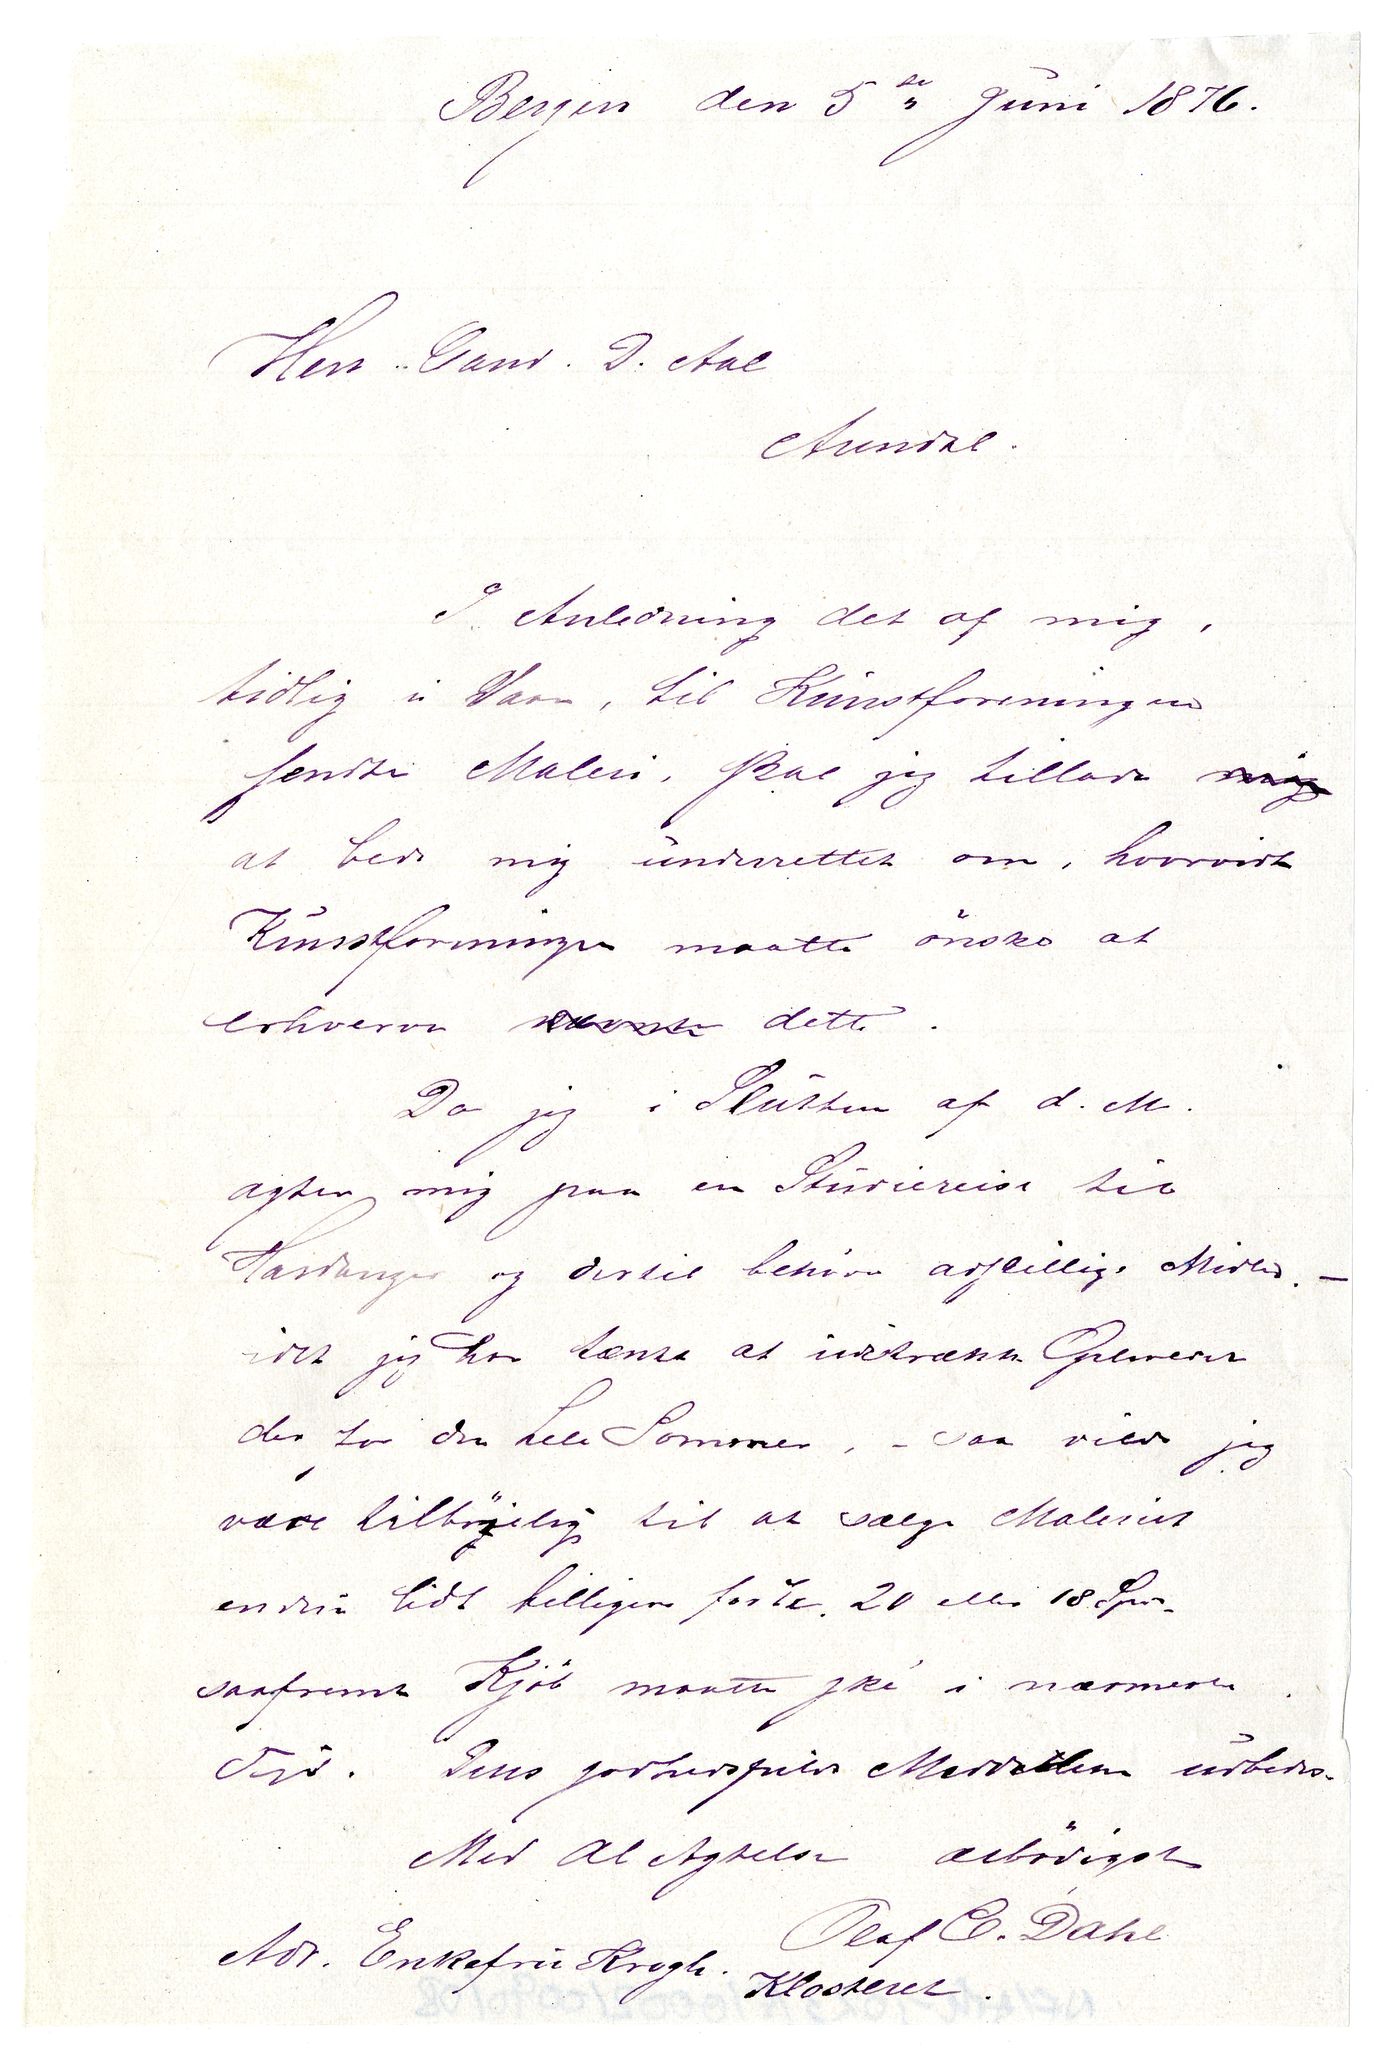 Bergen den 5te Juni 1876.
Herr Cand. D. Aal
Arendal.
I Anledning det af mig,
tidlig i Vaar, til Kunstforeningen
sendte Maleri, skal jeg tillade mig
at bede mig underrettet om, hvorvidt
Kunstforeningen maatte önske at
erhverve dette.
Da jeg i Slutten af d. M.
agter mig paa en Studiereise til
Hardanger og dertil behöver adskillige Midler. —
idet jeg har tænkt at udstrække Opholdet
der for den hele Sommer, – saa vilde jeg
være tilböjelig til at sælge Maleriet
endnu lidt billigere 20 eller 18 Spd.
saafremt Kjöb maatte ske i nærmeste
Tid. Deres godhedsfulde Meddelelse udbedes.
Med Al Agtelse ærbödigst
Olaf C. Dahl
Adr. Enkefru Krogh.
Klosteret.